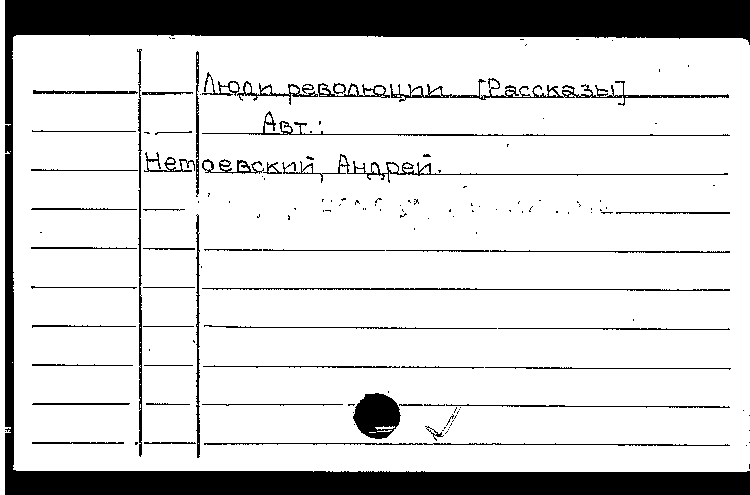 Люди революции [Рассказы]
Авт.:
Нетоевский, Андрей.